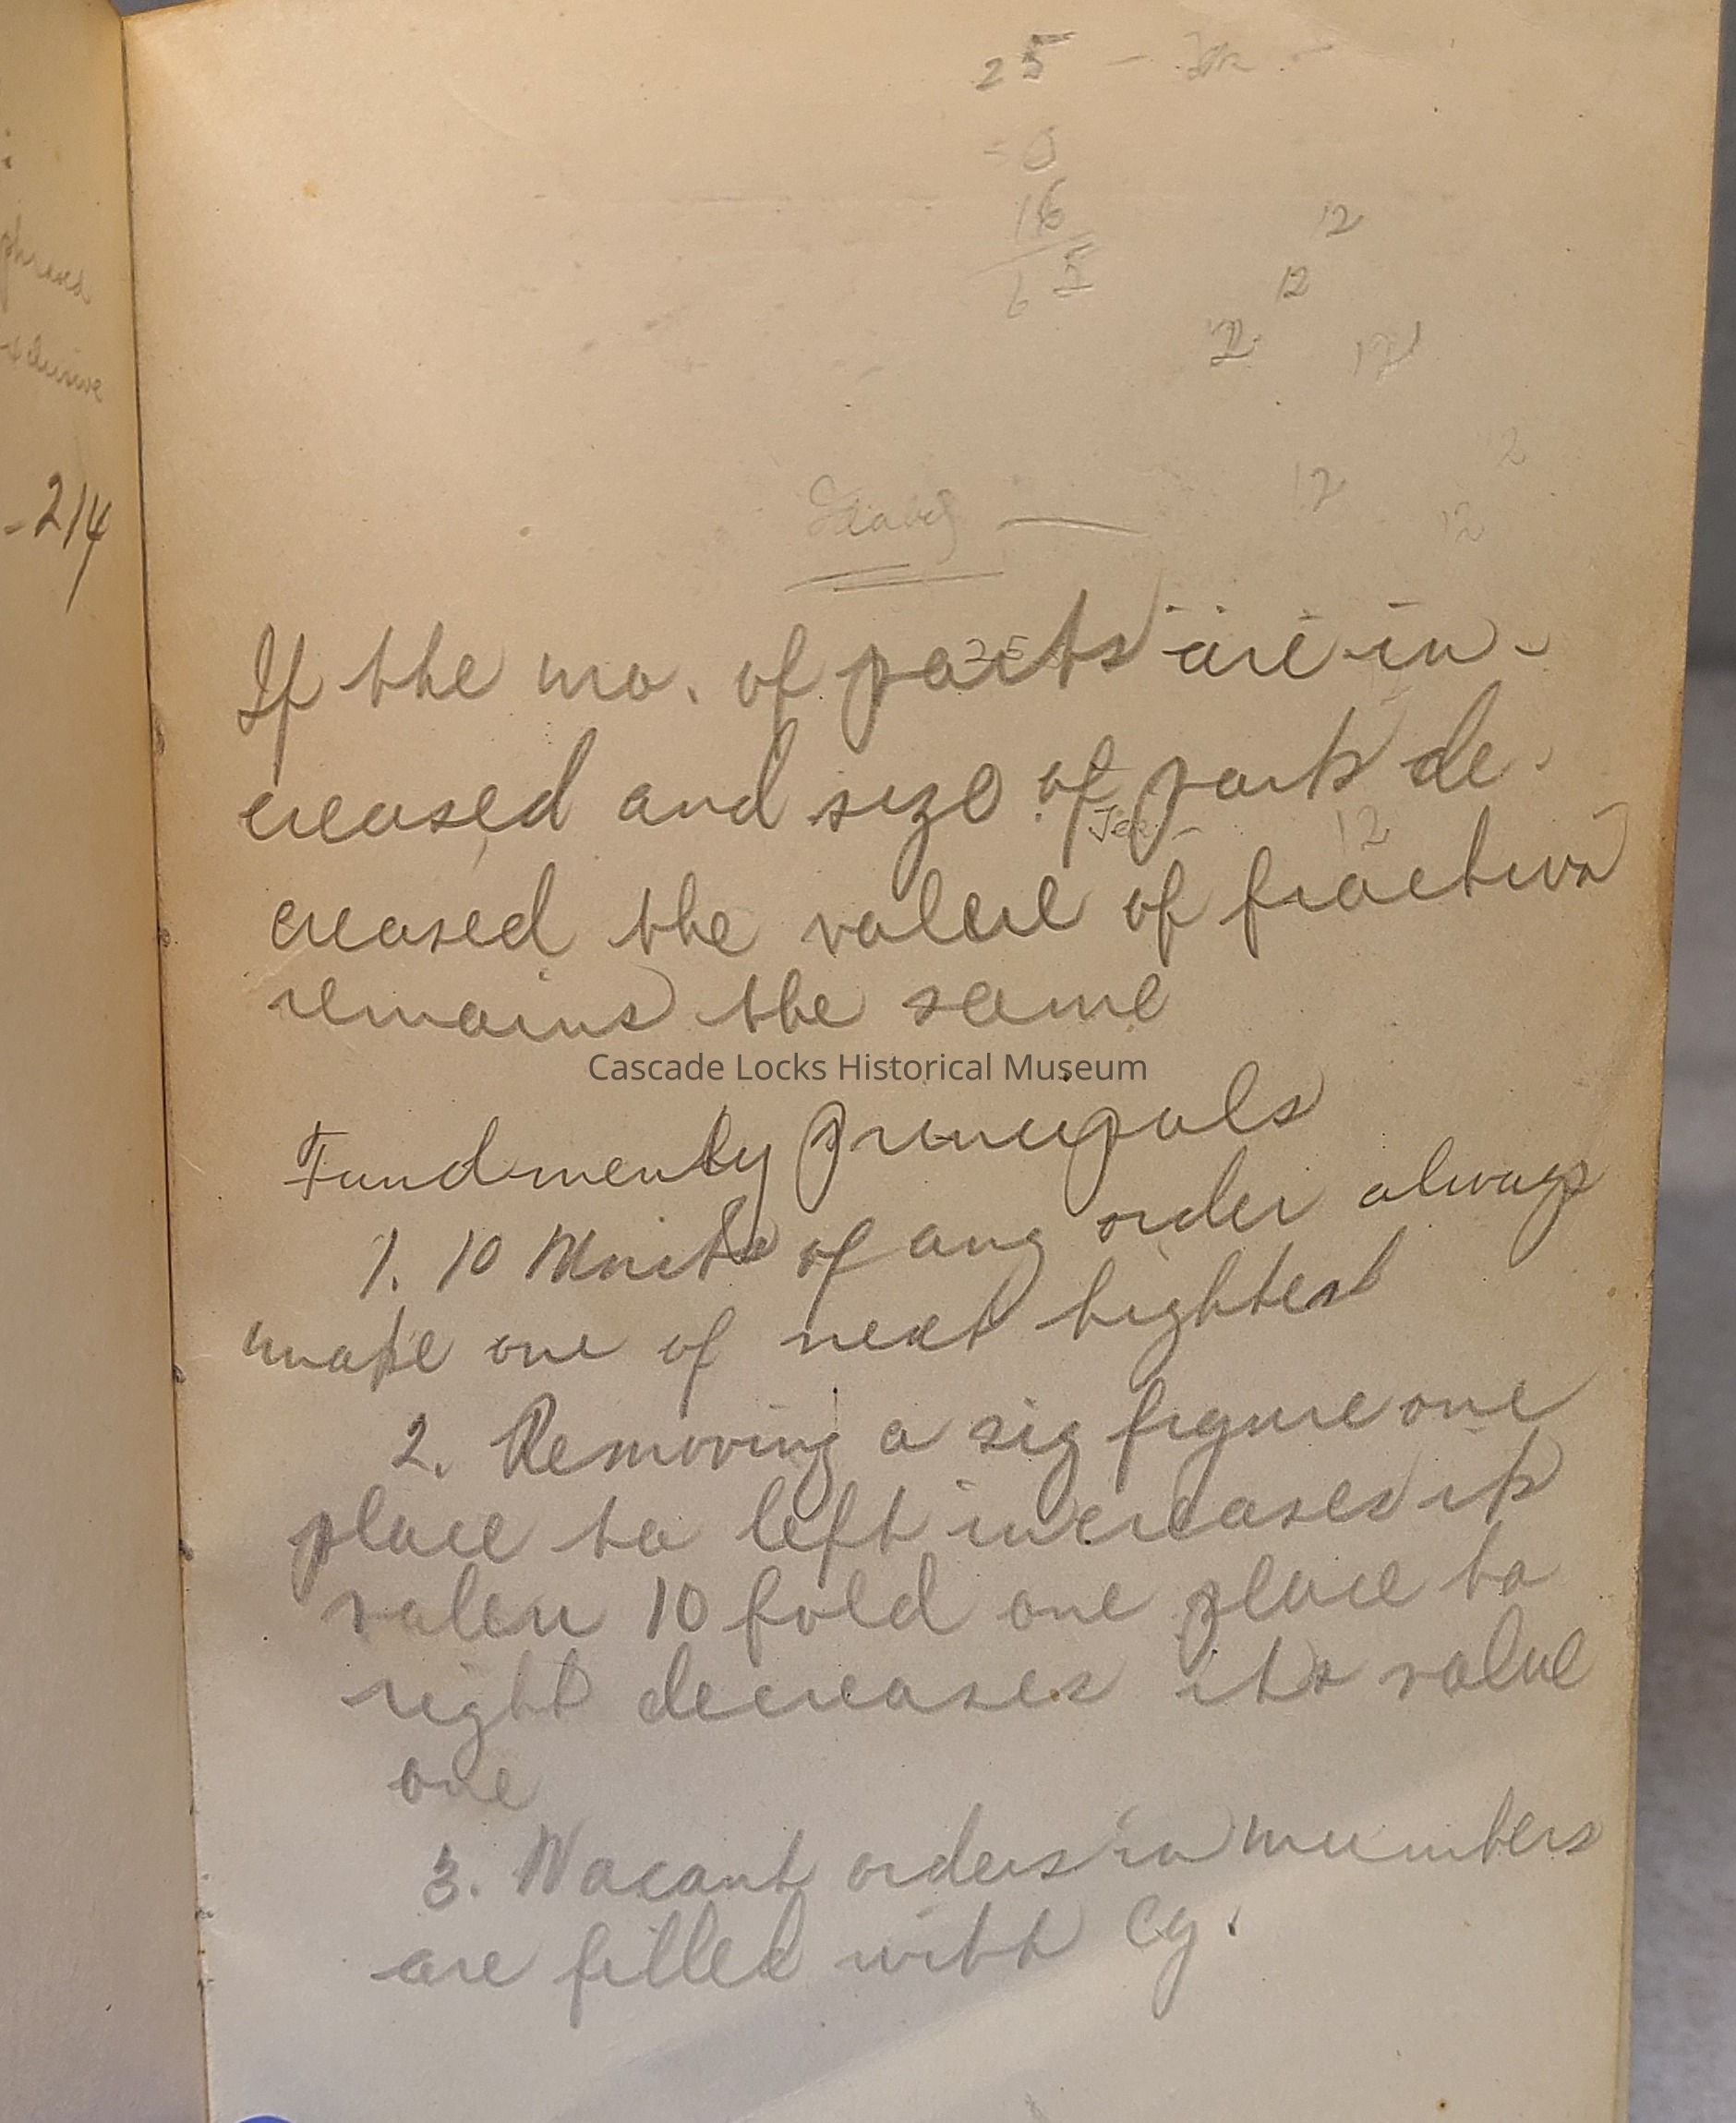 phrased
-214
25 -
0
16
65
12
12
12
12
12
12
12
If the no. of parts are in-
creased and size of parts de-
12
creased the value of fraction
remains the same
Cascade Locks Historical Museum
Fundmenty Principals
1. 10 Units of any order always
make one of next hightest
2. Removing a sig figure one
place to left increases its
valeu 10 fold one place to
right decreases its value
one
3. Vacant orders in numbers
are filled with Cy.